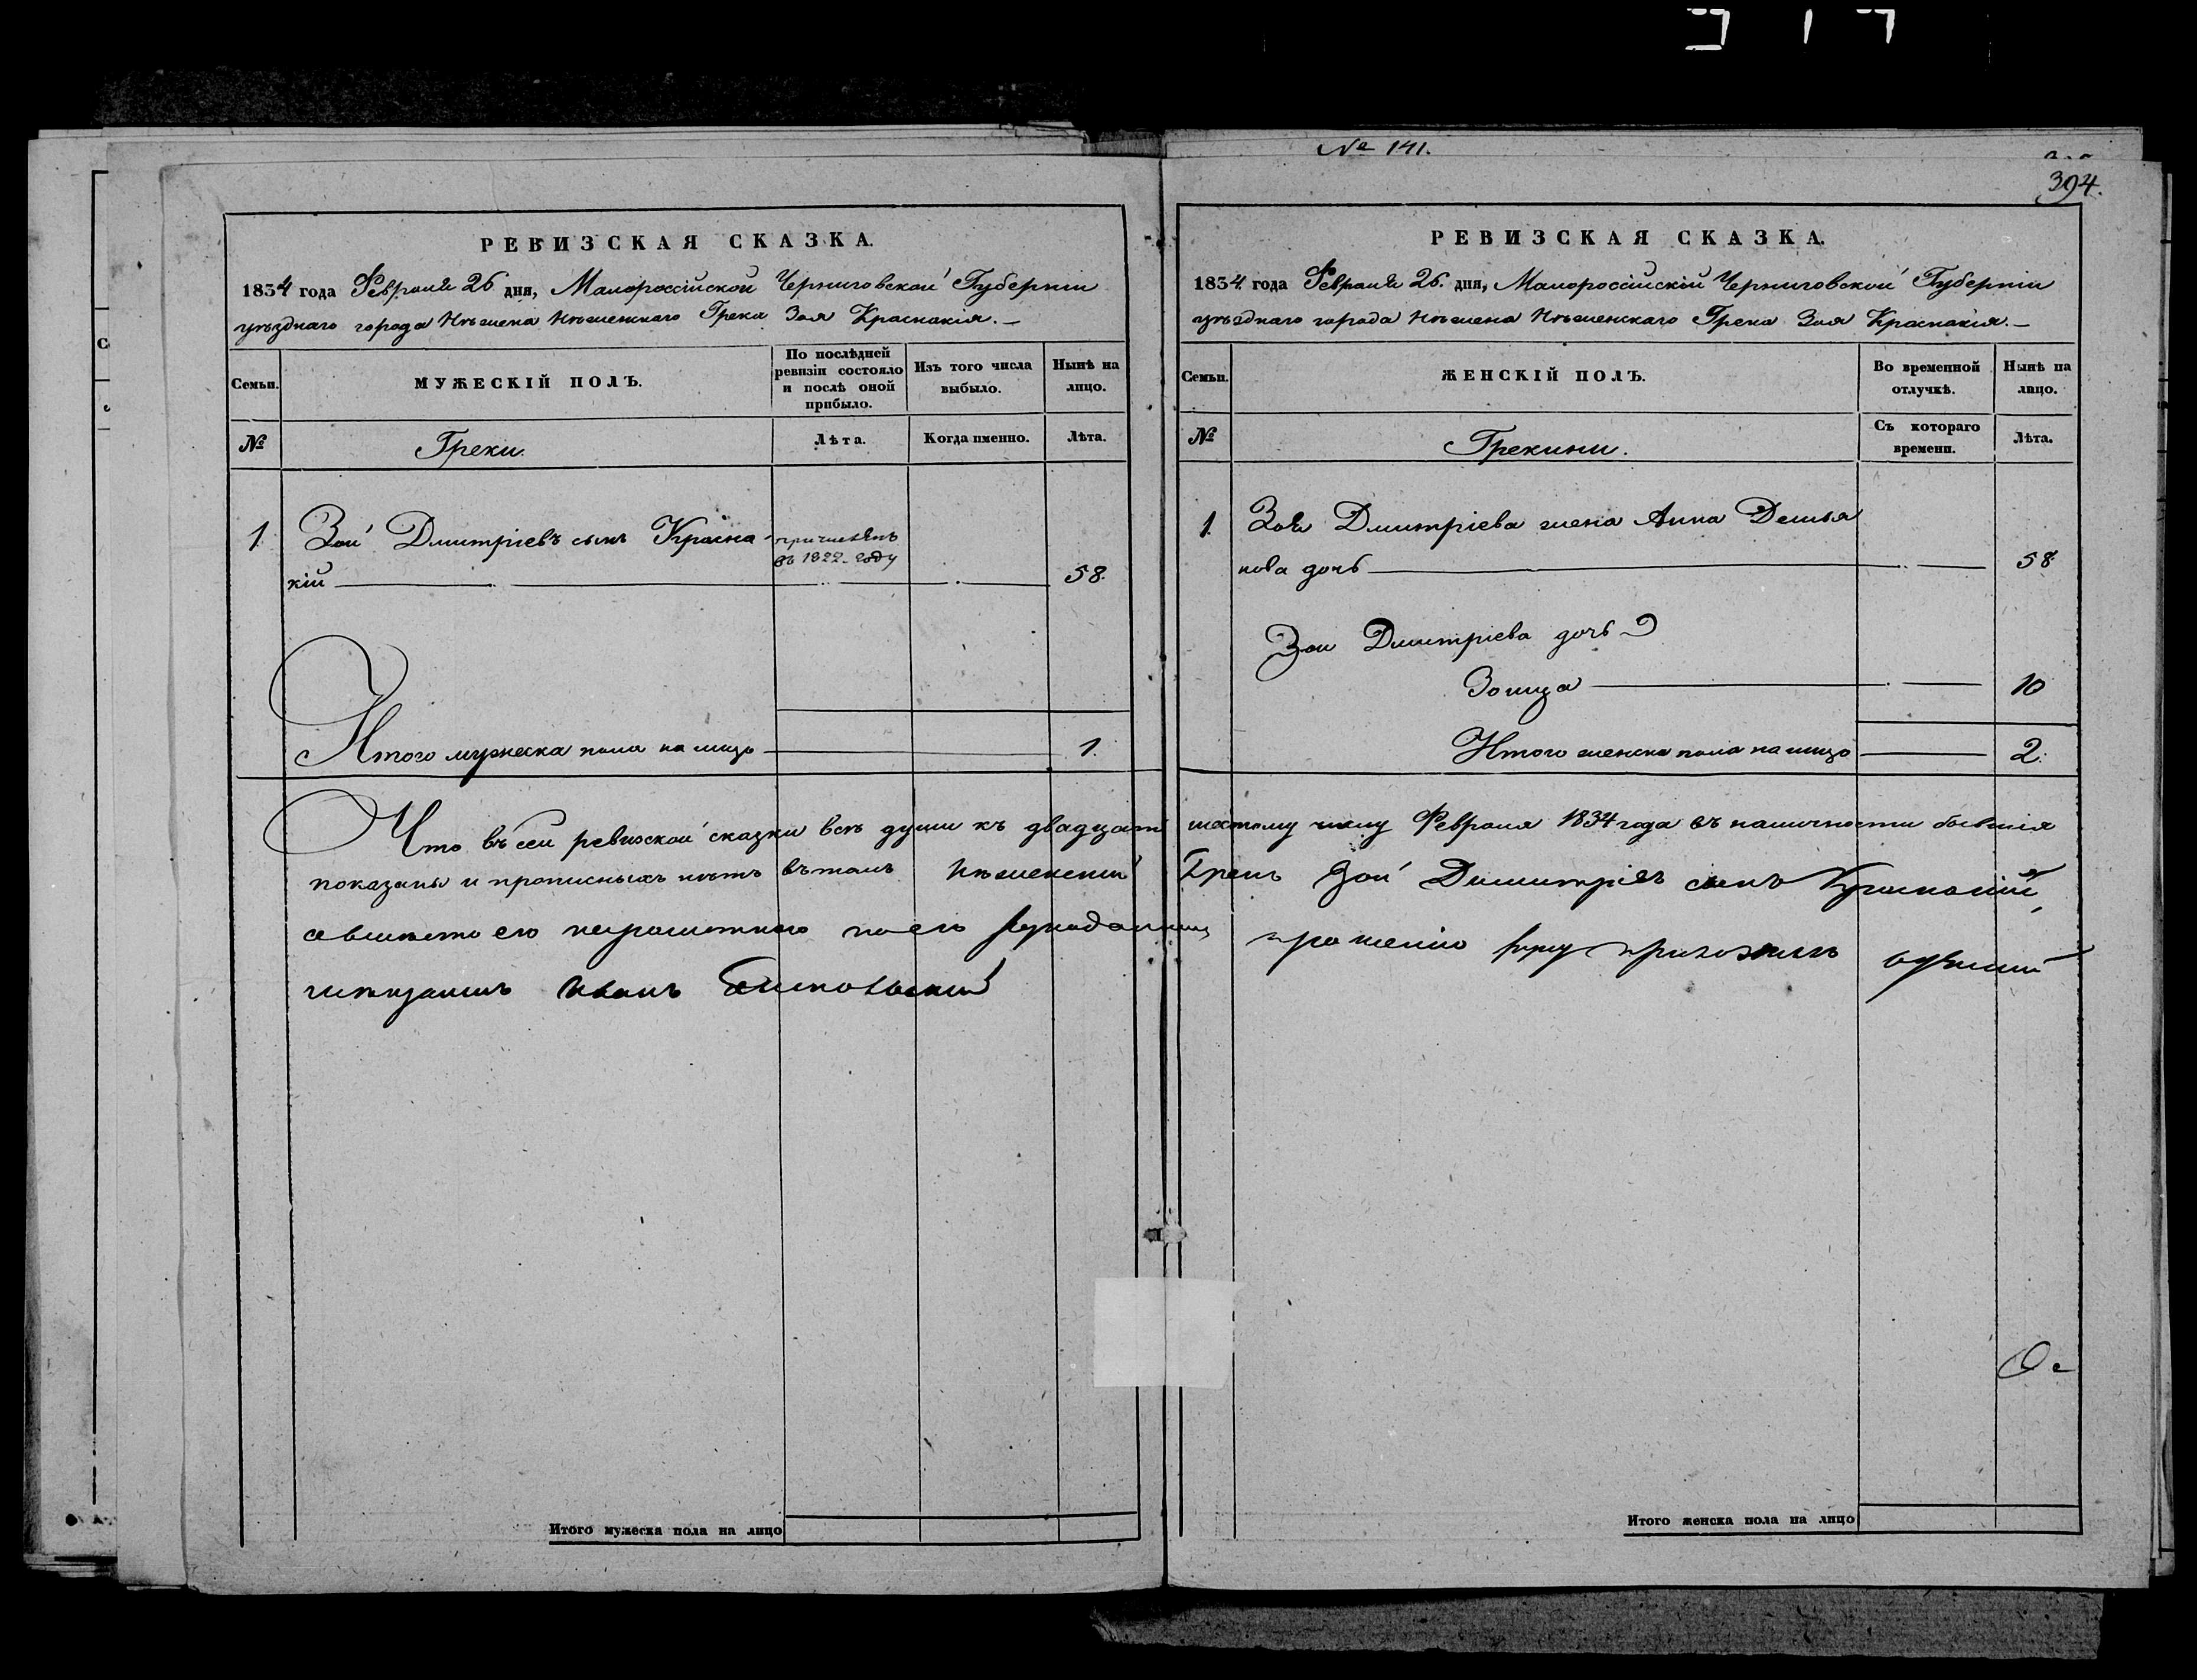 № 141.
394.
РЕВИЗСКАЯ СКАЗКА.
1834 года Февраля 26 дня, Малороссійской Черниговской Губерніи
уѣзднаго города Нѣжина Нѣжинскаго Грека Зоя Краснакія.—
Семьи.
МУЖЕСКІЙ ПОЛЪ.
По послѣдней ревизіи состояло и послѣ оной прибыло.
Изъ того числа выбыло.
Нынѣ на лицо.
№
Греки.
Лѣта.
Когда именно.
Лѣта.
1 Зой Дмитріевъ сынъ Красна- причисленъ
въ 1822 году
кій 58.
Итого мужеска пола на лицо 1.
РЕВИЗСКАЯ СКАЗКА.
1834 года Февраля 26. дня, Малороссійской Черниговской Губерніи
уѣзднаго города Нѣжина Нѣжинскаго Грека Зоя Краснакія.—
Семьи.
ЖЕНСКІЙ ПОЛЪ.
Во временной отлучкѣ.
Нынѣ на лицо.
№
Грекини.
Съ котораго времени.
Лѣта.
1. Зоя Дмитріева жена Анна Демья
нова дочь 58
Зои Дмитріева дочь
Зоица 10
Итого женска пола на лицо 2.
Что въ сей ревизской сказки всѣ души къ двадцать шестому числу Февраля 1834 года въ наличности бывшія
показаны и прописныхъ нѣтъ въ томъ Нѣженский Грекъ Зой Димитріевъ сынъ Краснакий,
а вмѣсто его неграмотнаго по его рукоданному прошению руку приложилъ
Иванъ
Итого мужеска пола на лицо
Итого женска пола на лицо